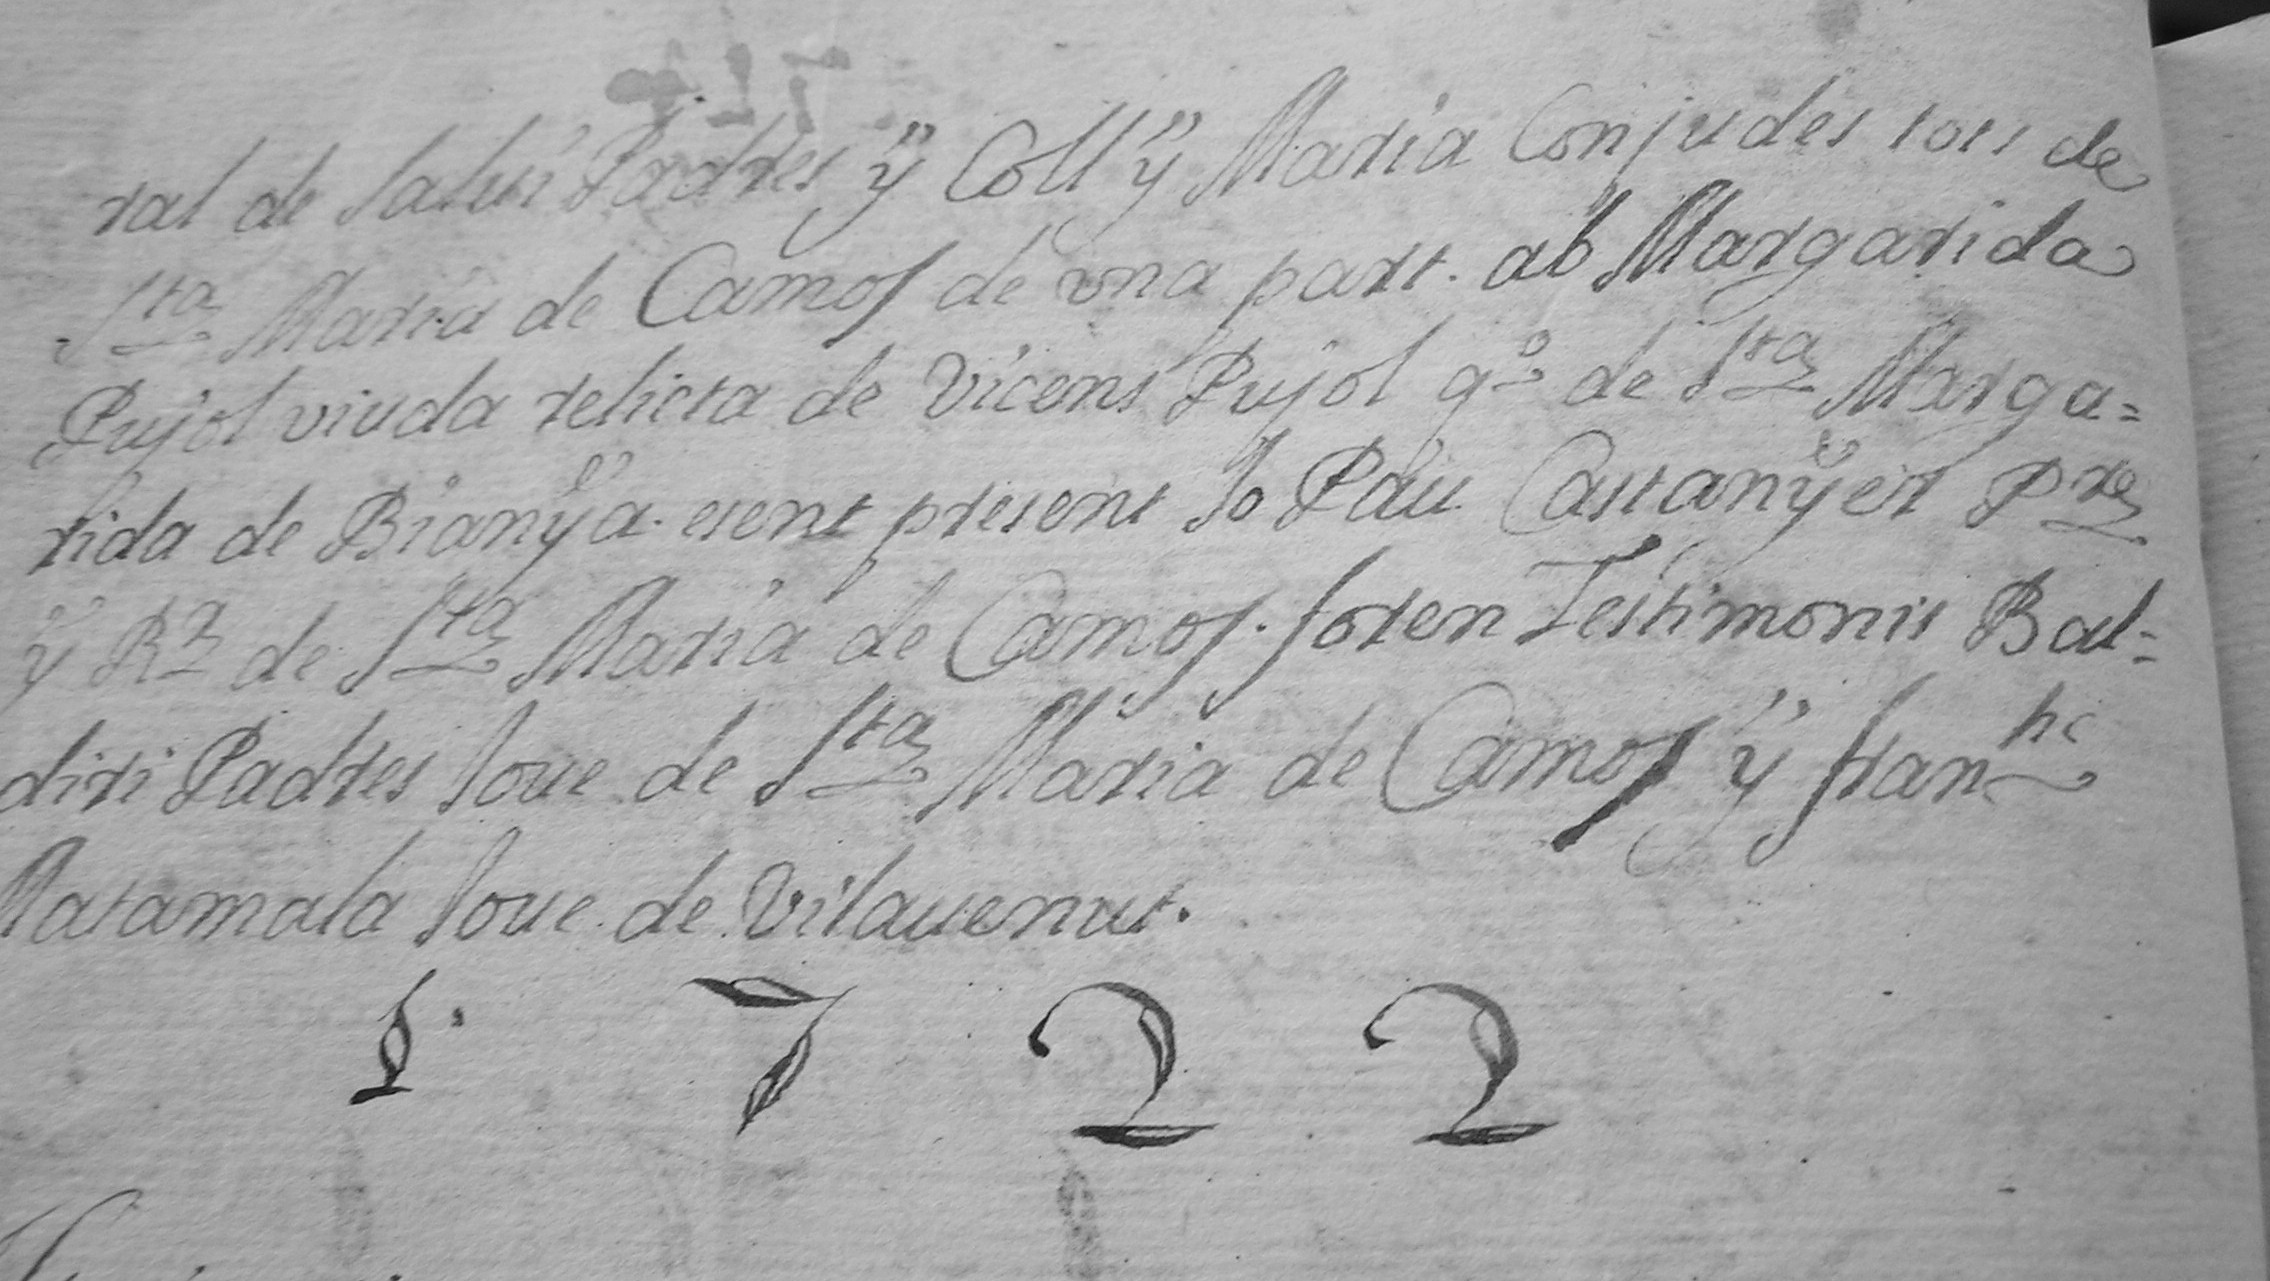 ral de Saluî Padres ÿ Coll ÿ Maria Conjudes tots de
Sta Maria de Camos de vna part. ab Margarida
Pujol viuda relicta de Vicens Pujol qo de Sta Marga=
rida de Bianÿa. esent present Jo Pau Castanÿer Pre
ÿ Rr de Sta Maria de Camos. foren Testimonis Bal=
diri Padres Joue de Sta Maria de Camos ÿ franhc
Matamala Joue de Vilauenut.
1 7 2 2